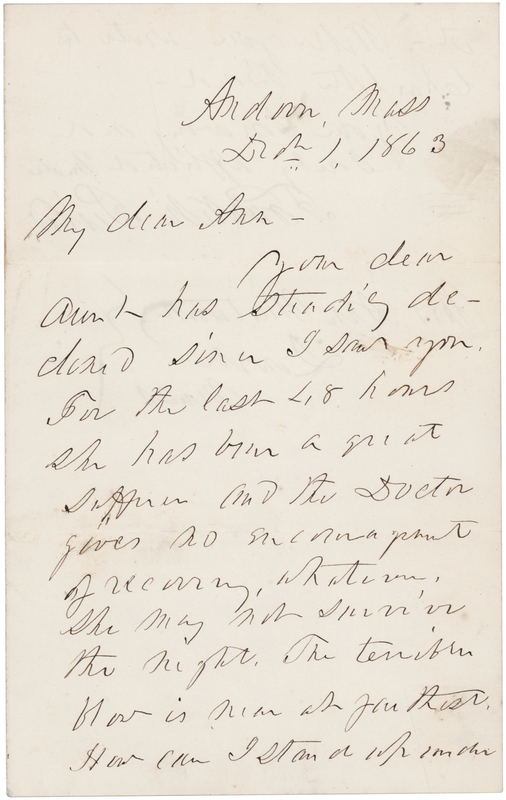 Andover, Mass
Dec 1, 1863
My dear Ann –
Your dear
Aunt has steadily de-
clined since I saw you.
For the last 48 hours
she has been a great
sufferer and the Doctor
gives no encouragement
of recovery, whatever.
She may not survive
the night. The terrible
blow is near at farthest.
How can I stand up under